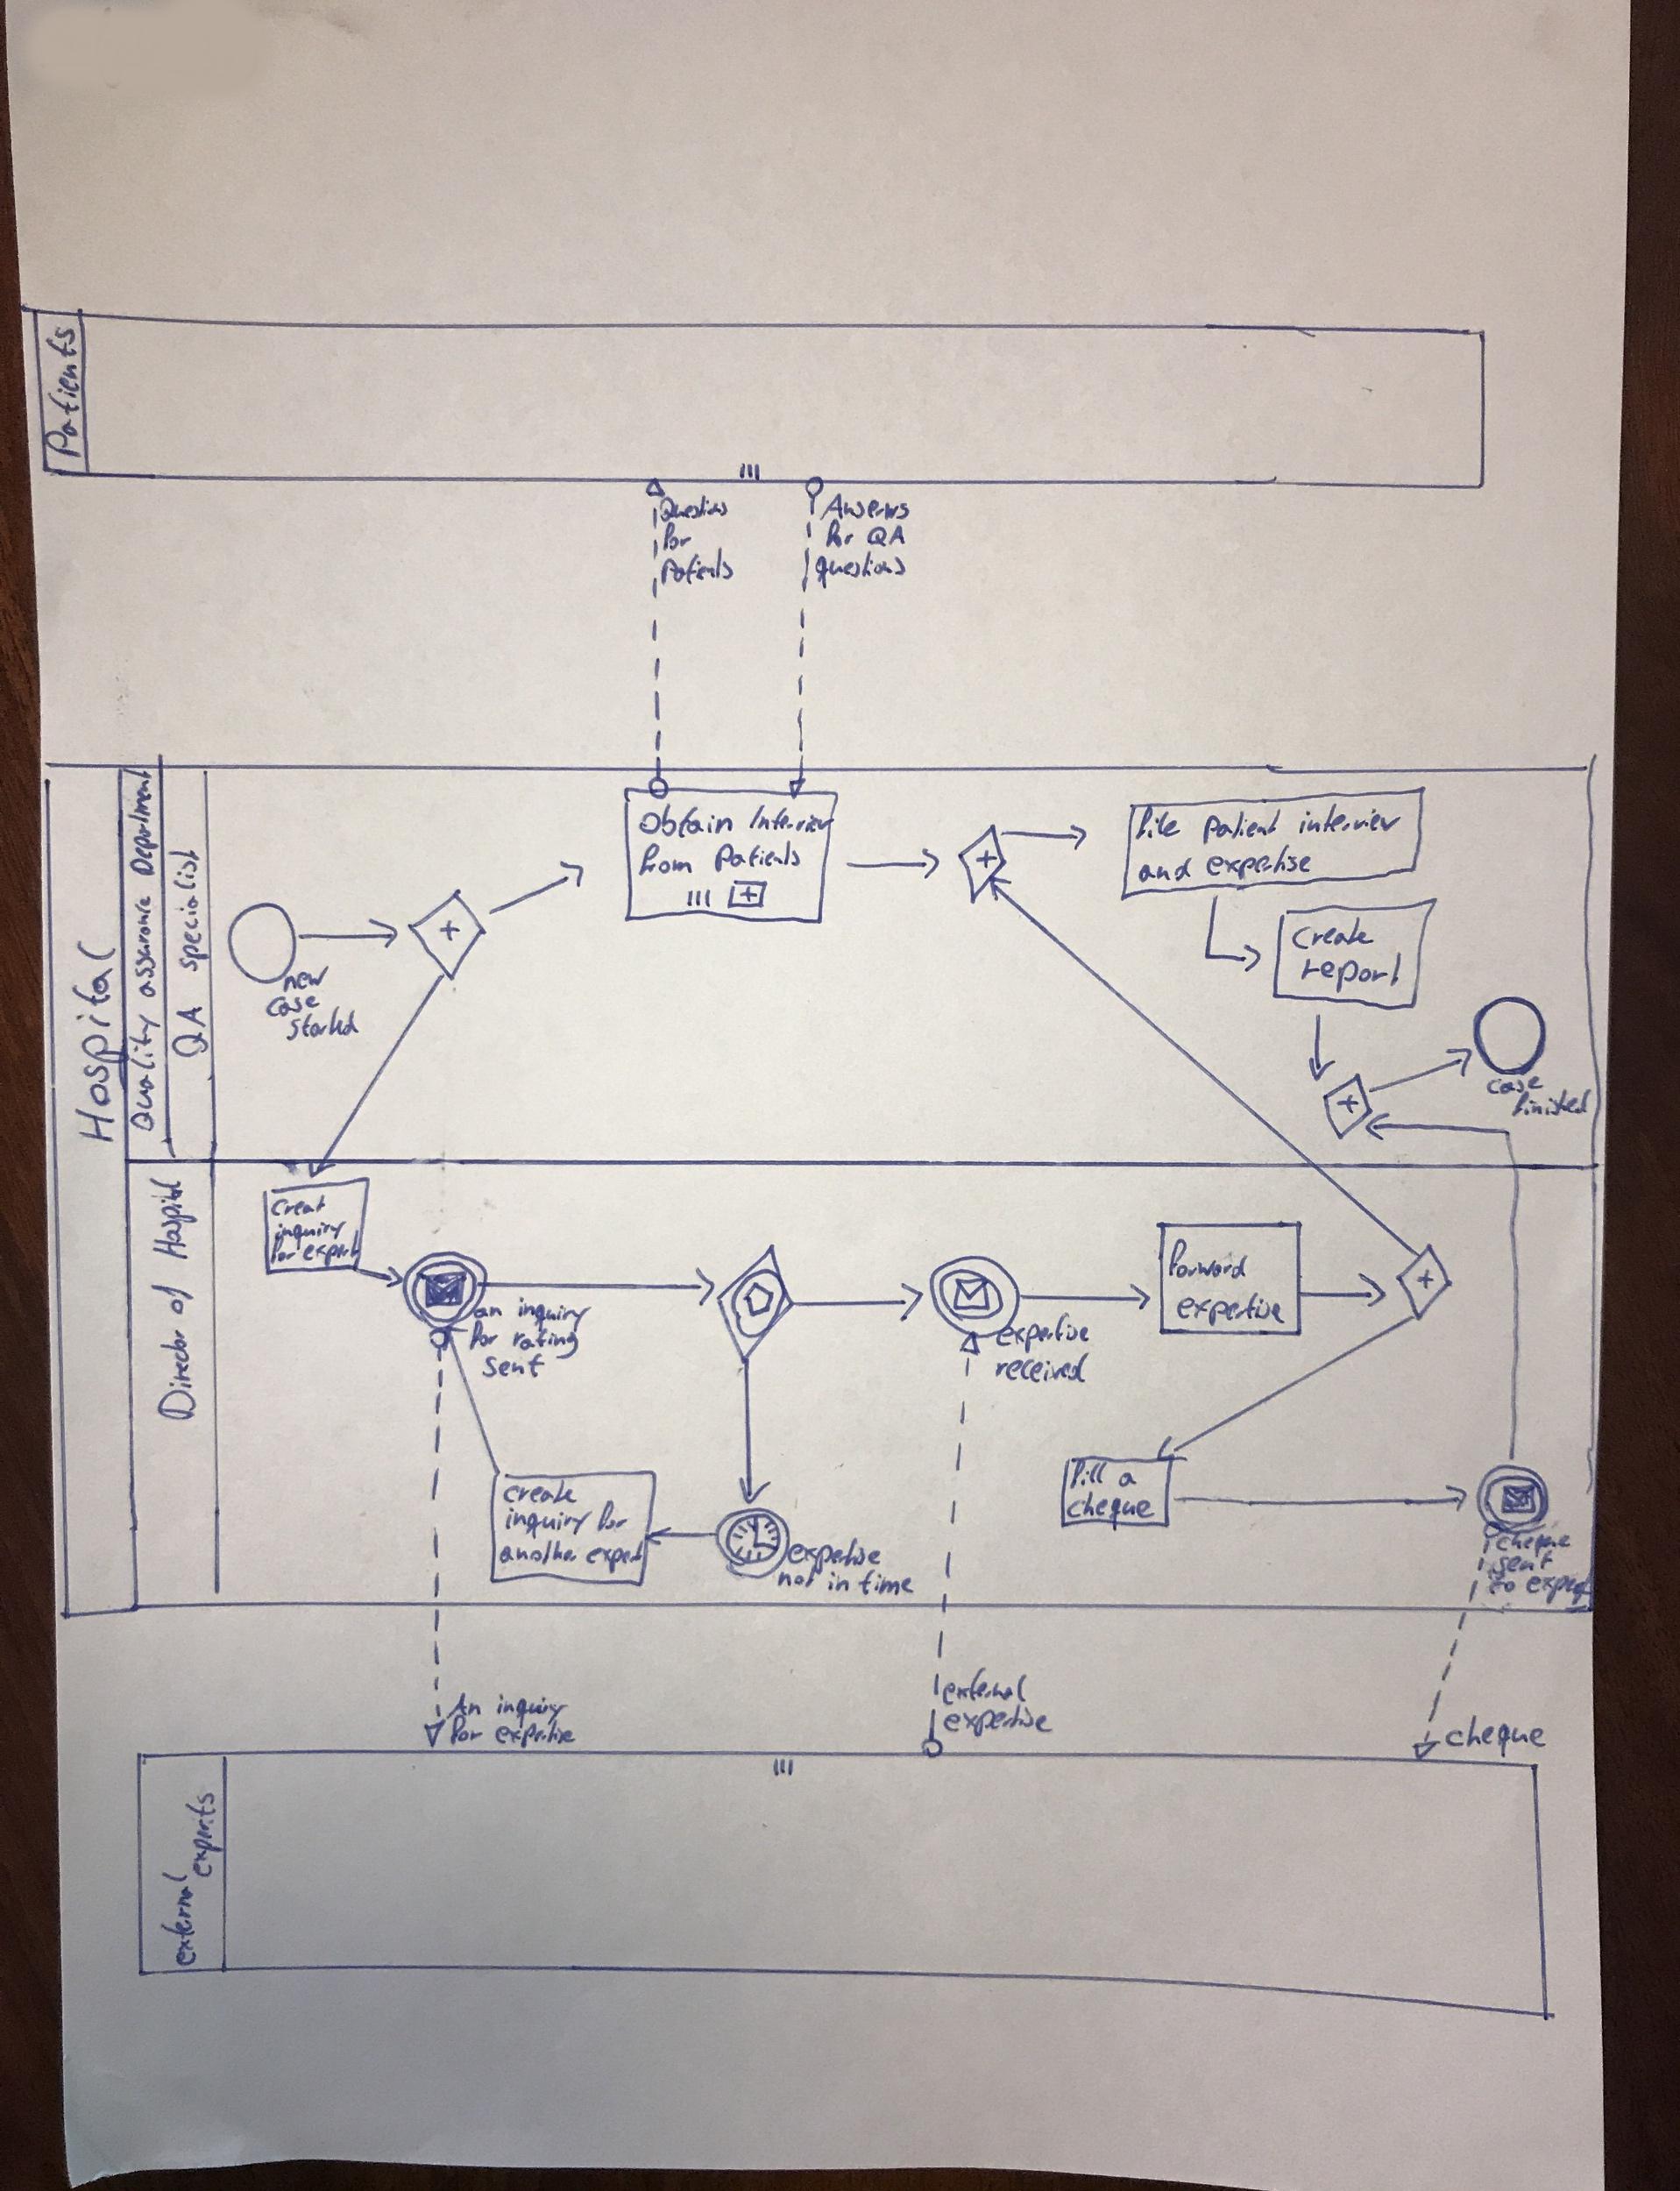 Patients
Questions
for
Patients
Answers
for QA
questions
Hospital
Quality assurance Department
QA specialist
new
case
started
Obtain Interview
from patients
file patient interview
and expertise
create
report
case
finished
Director of Hospital
creat
inquiry
for expert
an inquiry
for rating
sent
expertise
received
forward
expertise
create
inquiry for
another expert
expertise
not in time
fill a
cheque
cheque
sent
to expert
An inquiry
for expertise
external
expertise
cheque
external
experts